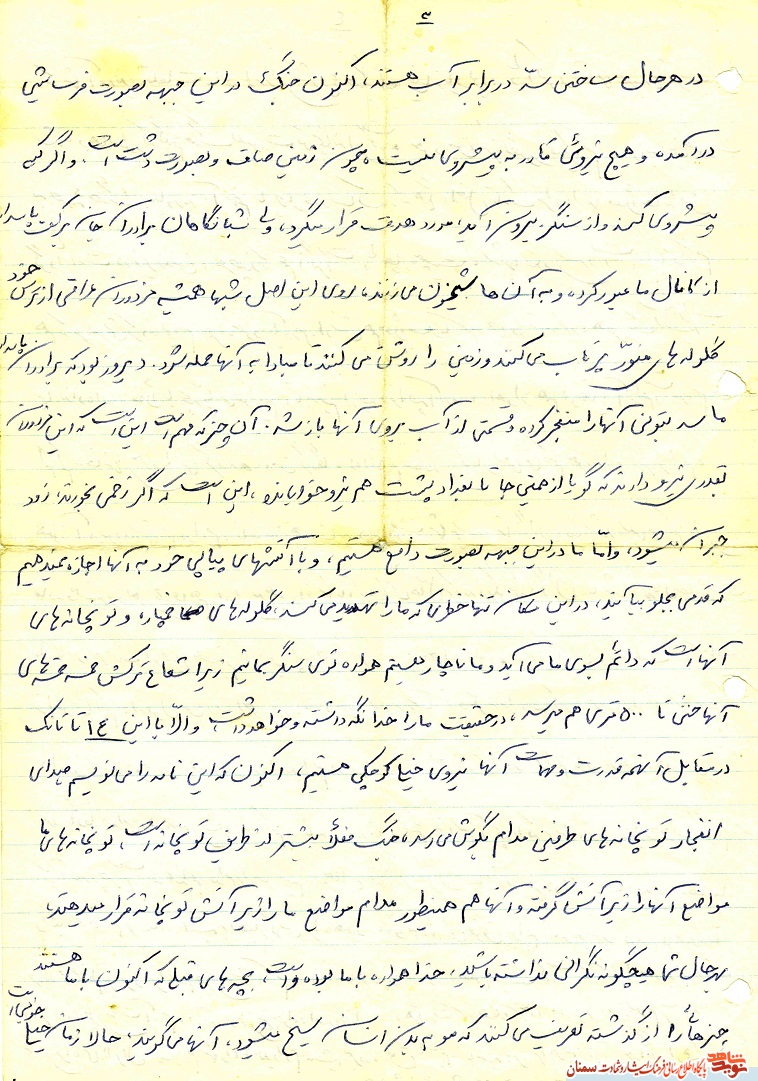 ۳
در هر حال ساختن سدّ در برابر آب هستند، اکنون جنگ در این جبهه بصورت فرسایشی
درآمده و هیچ نیروئی قادر به پیشروی نیست، چون زمین صاف و بصورت دشت است. و اگر کسی
پیشروی کند و از سنگر بیرون آید، مورد هدف قرار میگیرد، ولی شبانگاهان برادران جان برکف پاسدار
از کانال ما عبور کرده، و به آن ها شبیخون می‌زنند، روی این اصل شبها همیشه مزدوران عراقی از ترس خود
گلوله های منوّر پرتاب می‌کنند و زمین را روشن می کنند تا مبادا به آنها حمله شود. دیروز بود که برادران پاسدار
ما سد بتونی آنها را منفجر کرده و قسمتی از آب بروی آنها باز شد. آن چیز که مهم است این است که این مزدوران
بقدری نیرو دارند که گویا از همین جا تا بغداد پشت هم نیرو خوابانده، این است که اگر زخمی بخورند، زود
جبران میشود، و امّا ما در این جبهه بصورت دافع هستیم، و با آتشهای پیاپی خود به آنها اجازه نمیدهیم
که قدمی بجلو بیآیند، در این مکان تنها خطری که ما را تهدید می کند، گلوله‌های خمپاره و توپخانه های
آنها است که دائم بسوی ما می آید و ما ناچار هستیم همواره توی سنگر بمانیم زیرا شعاع ترکش خمسه خمسه های
آنها حتی تا ۵۰۰ متری هم میرسد، در حقیقت ما را خدا نگه داشته و خواهد داشت والّا با این ۱۴ تا تانک
در مقابل آنهمه قدرت و مهمات آنها نیروی خیلی کوچکی هستیم، اکنون که این نامه را می‌نویسم صدای
انفجار توپخانه های طرفین مدام بگوش می رسد، جنگ فعلاً بیشتر از طریق توپخانه است، توپخانه های ما
مواضع آنها را زیر آتش گرفته و آنها هم همینطور مدام مواضع ما را زیر آتش توپخانه قرار میدهند،
بهر حال شما هیچگونه نگرانی نداشته باشید، خدا همواره با ما بوده و است، بچه های قبلی که اکنون با ما هستند
چیزهائی را از گذشته تعریف می کنند که مو به بدن انسان سیخ میشود، آنها می‌گویند، حالا زمان خیلی خوبی است
نوید شاهد پایگاه اطلاع رسانی فرهنگ ایثار و شهادت سمنان